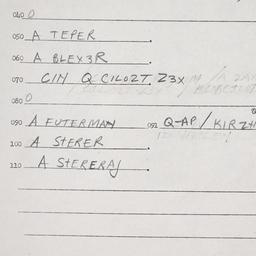 040 0
050 A TEPER
060 A BLEX3R
070 GIN Q CILOZT Z3X
080 0
090 A FUTERMAN 092 Q-AP/KIRZ
100 A STERER
110 A STERERAJ